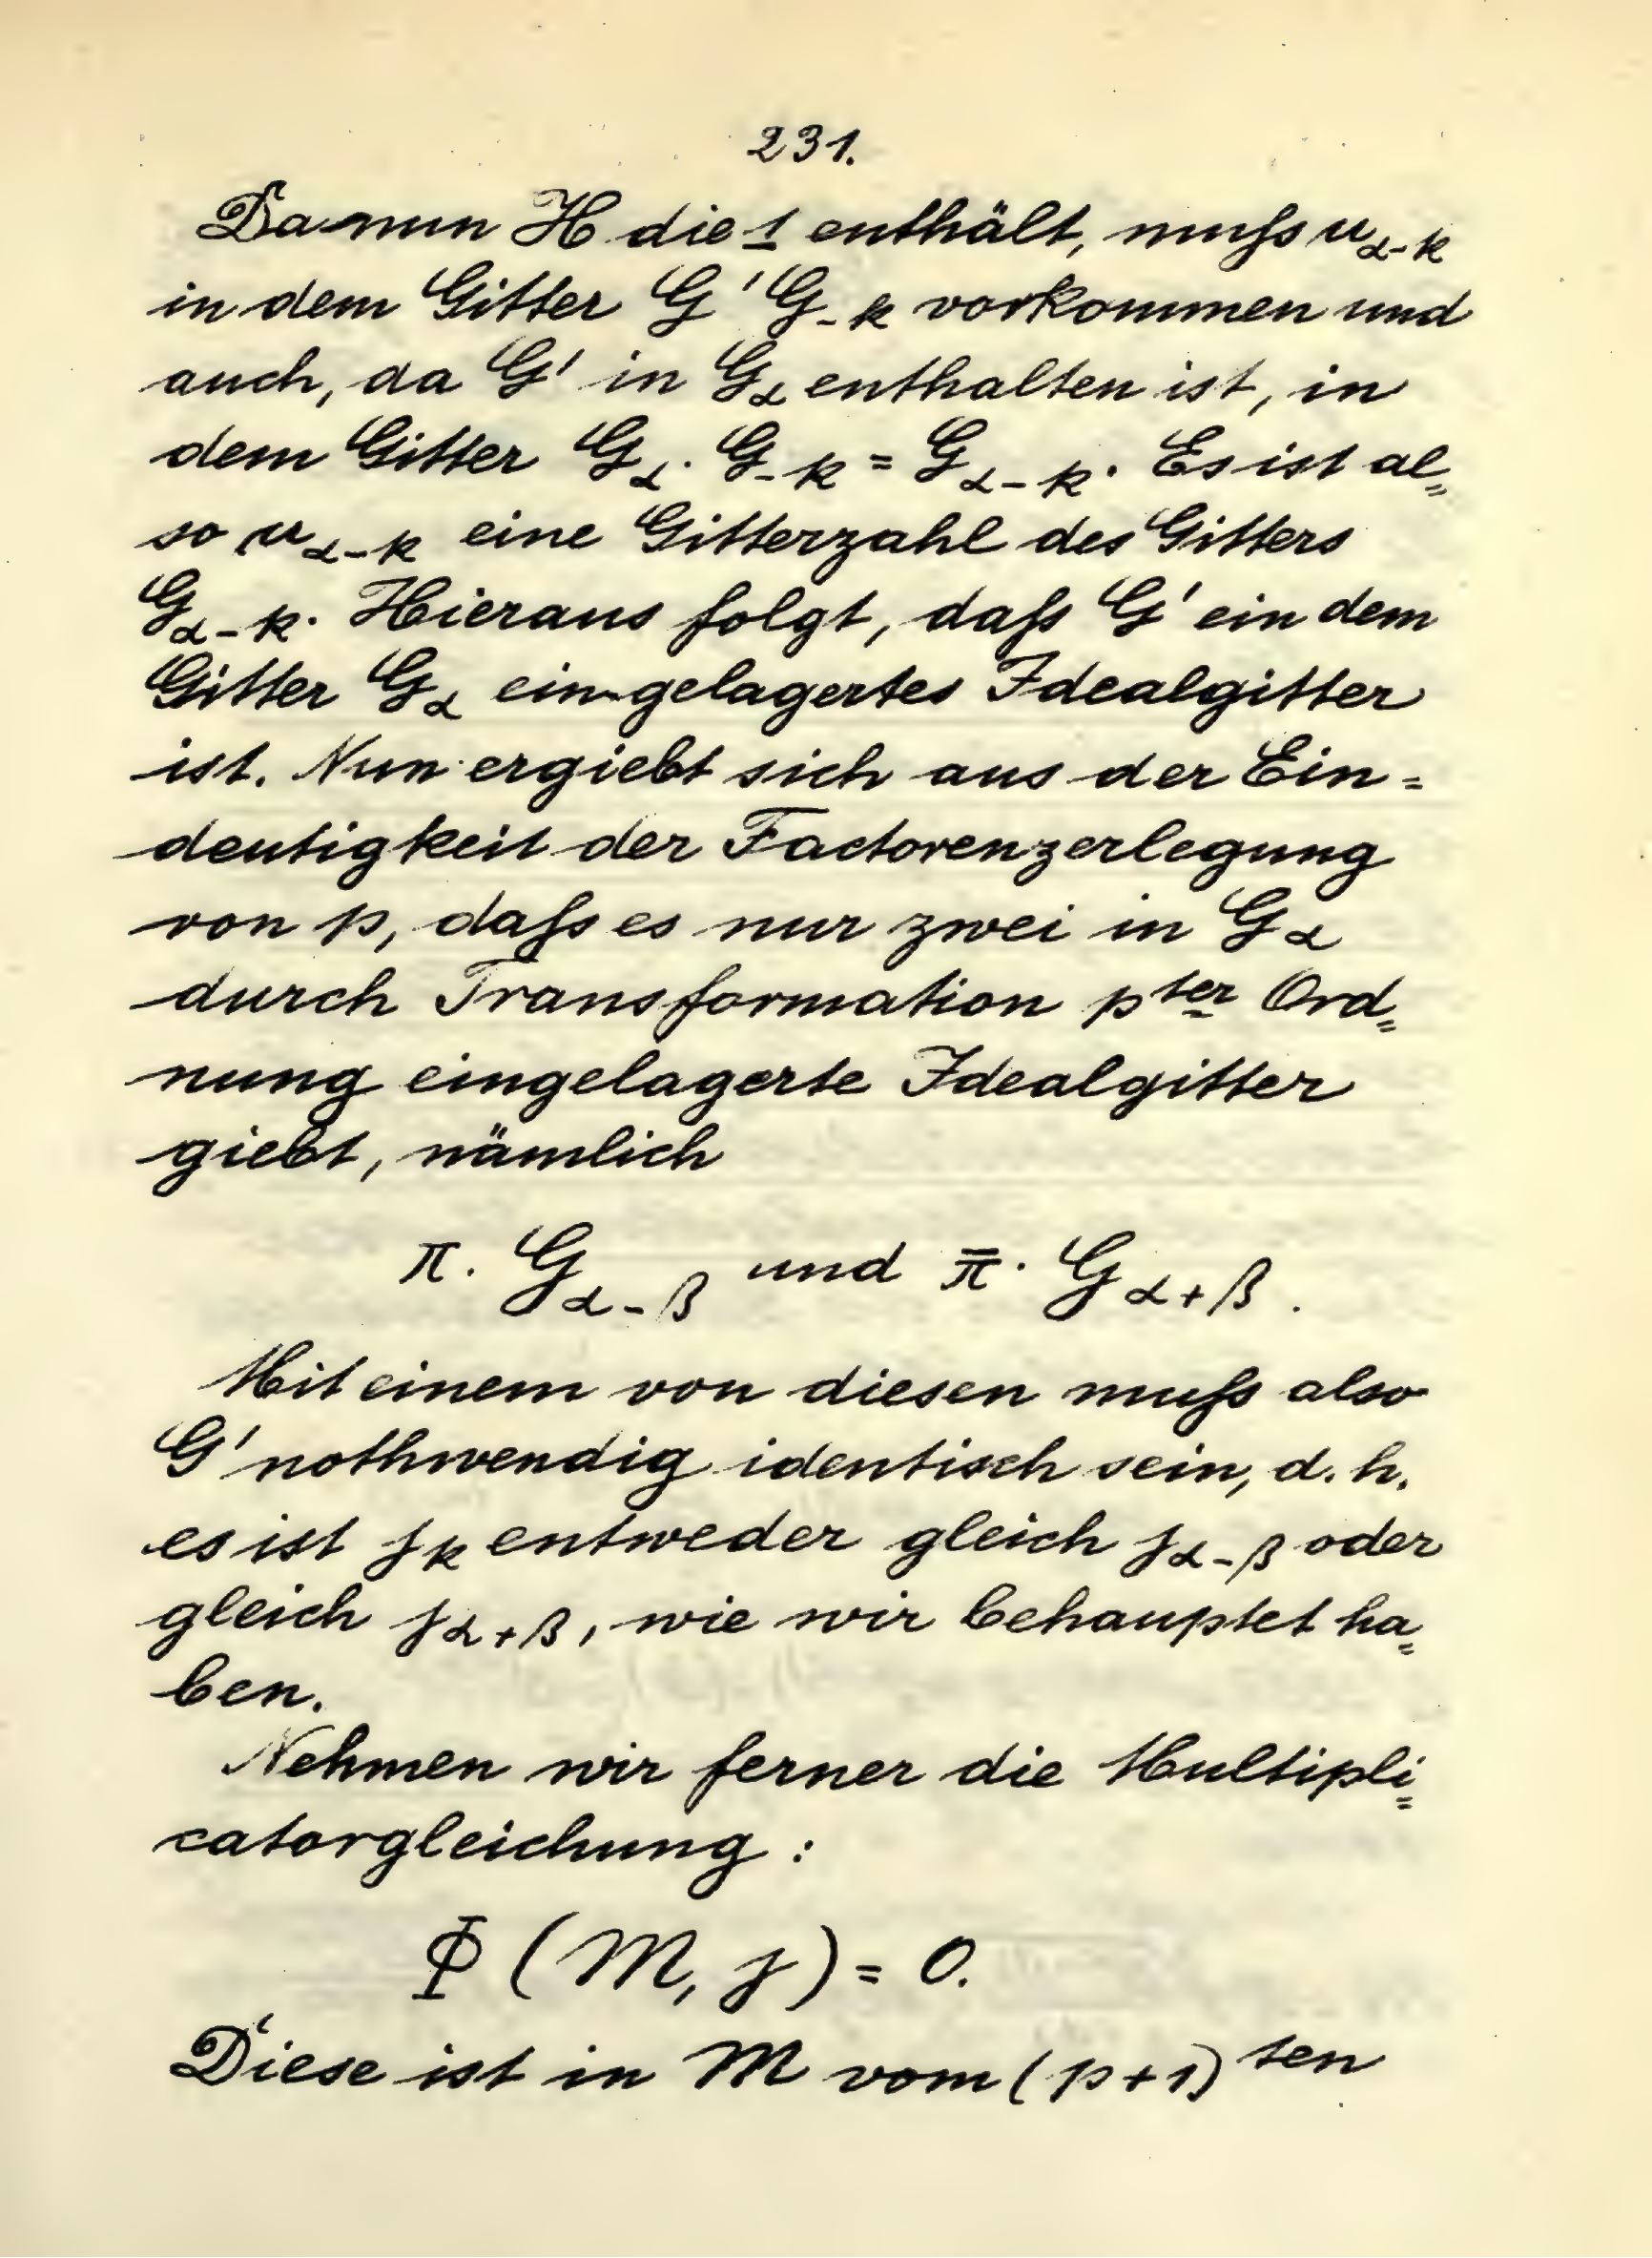 231.
Da nun H die 1 enthält, muſs u_{α-k}
in dem Gitter G' G_{-k} vorkommen und
auch, da G' in G_α enthalten ist, in
dem Gitter G_α · G_{-k} = G_{α-k}. Es ist al=
so u_{α-k} eine Gitterzahl des Gitters
G_{α-k}. Hieraus folgt, daſs G' ein dem
Gitter G_α eingelagertes Idealgitter
ist. Nun ergiebt sich aus der Ein=
deutigkeit der Factorenzerlegung
von p, daſs es nur zwei in G_α
durch Transformation p^{ter} Ord=
nung eingelagerte Idealgitter
giebt, nämlich
π. G_{α-β} und π̄. G_{α+β}.
Mit einem von diesen muſs also
G' nothwendig identisch sein, d. h.
es ist j_k entweder gleich j_{α-β} oder
gleich j_{α+β}, wie wir behauptet ha=
ben.
Nehmen wir ferner die Multipli=
catorgleichung:
Φ (M, j) = 0.
Diese ist in M vom (p+1)^{ten}